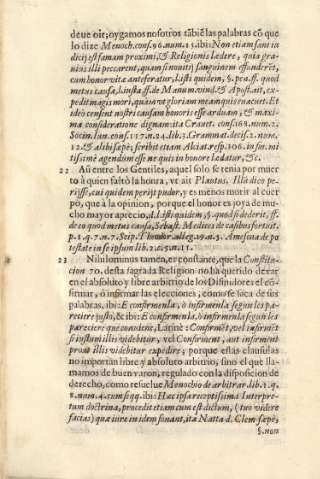 deue oir; oygamos nosotros tãbiẽ las palabras cõ que
lo dize Menoch. cons. 96. num. 15. ibi: Non etiam sunt in
dicij est famam proximi, & Religionis lædere, quia gra-
uius illi peccarent, quam si nouiter sanguinem effunderẽt,
cum honor vitæ anteferatur, l. isti quidem, §. fea. ff. quod
metus causa, l. iusta ff. de Manum. vind. & Apost. ait, ex-
pedit magis mori, quàm vt gloriam meam quis euacuet. Et
ideò censent nostri causam honoris esse arduam, & maxi-
ma consideratione dignam ita Crauet. cons. 68. num. 2.
Socin. Iun. cons. 117. n. 24. lib. 3. Grammat. decis. 2. num.
12. & alibi sæpè; scribit etiam Alciat. resp. 106. in fin. mi-
tissimè agendum esse ne quis in honore lædatur, &c.
22 Aũ entre los Gentiles, aquel solo se tenia por muer
to à quien faltò la honra, vt ait Plautus. Ille dico pe-
rijsse, cui quidem perijt pudor, y es menos morir al cuer
po, que à la opinion, porque el honor es joya de mu-
cho mayor aprecio, d. l. isti quidem, §. quod si dederit, ff.
de eo quod metus causa, Sebast. Medices de casibus fortuit.
p. 1. q. 7. n. 7. Scip. Theodor. alleg. 19. n. 3. Amescua de po
testate in se ipsum lib. 2. c. 5. n. 11.
23 Nihilominus tamen, es constante, que la Constitu-
cion 70. desta sagrada Religion no ha querido dexar
en el absoluto y libre arbitrio de los Difinidores el cõ-
firmar, ò infirmar las elecciones, como se saca de sus
palabras, ibi: E confirmenla, ò infirmenla segun les pa-
reciere justo, & ibi: E confirmenla, ò infirmenla segun les
pareciere que conuiene, Latinè: Confirmẽt, vel infirmẽt
si iustum illis videbitur, vel Confirment, aut infirment
prout illis videbitur expedire; porque estas clausulas
no importan libre y absoluto arbitrio, sino el que lla-
mamos de buen varon, regulado con la disposicion de
derecho, como resuelue Menochio de arbitrar. lib. 1. q.
8. num. 4. cum seqq. ibi: Hac ipsa receptissima Interpre-
tum doctrina, procedit etiam cum est dictum, (tuo videre
facias) quæ iure in idem sonant, ità Natta d. Clem. sæpè,
§. non